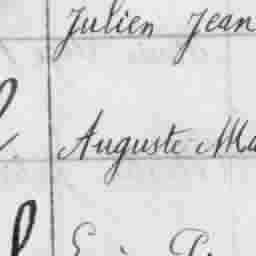 Julien Jean
Auguste Ma